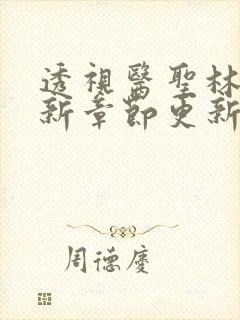 透視醫聖林
新章節更新
周德慶